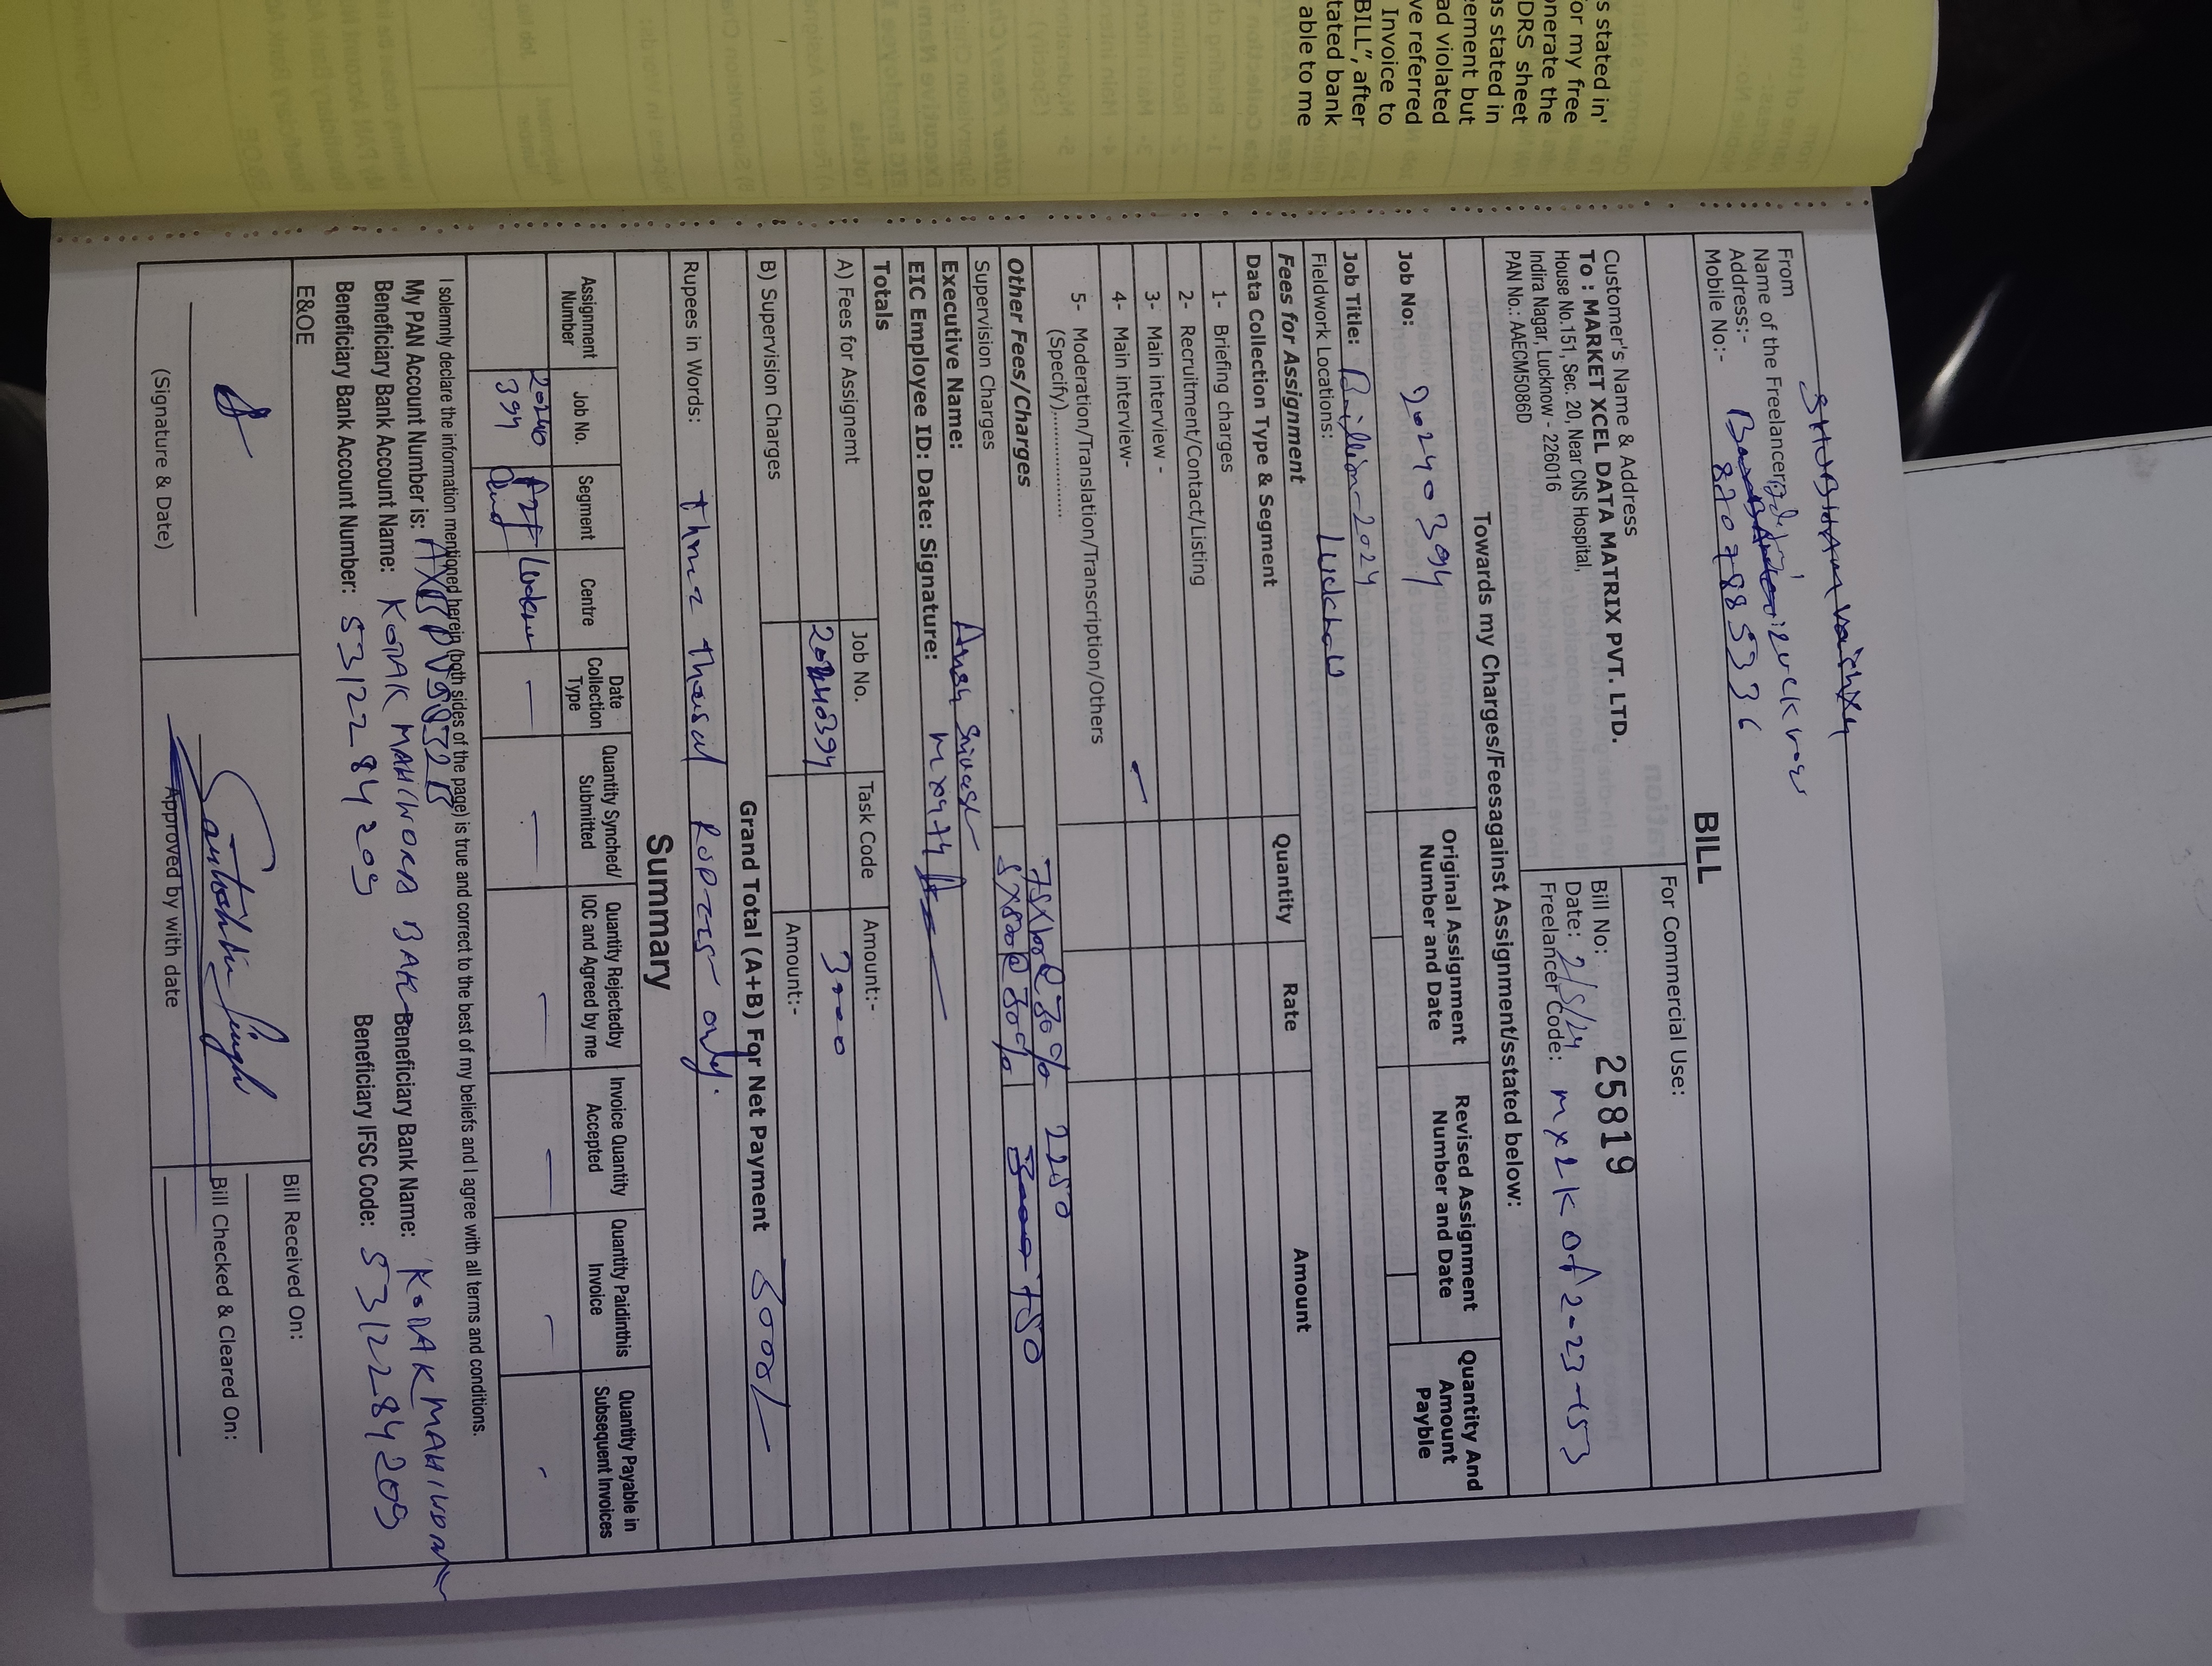 s stated in'
or my free
onerate the
DRS sheet
as stated in
eement but
ad violated
ve referred
Invoice to
BILL", after
tated bank
able to me
From
Name of the Freelancer
SHUBHAM
Address:-
Mobile No:- 8707885336
BILL
For Commercial Use:
Customer's Name & Address
To : MARKET XCEL DATA MATRIX PVT. LTD.
House No.151, Sec. 20, Near CNS Hospital,
Indira Nagar, Lucknow - 226016
PAN No.: AAECM5086D
Bill No: 25819
Date: 2/5/24
Freelancer Code: MX2K
Towards my Charges/Feesagainst Assignment/sstated below:
Job No: 20240394
Original Assignment Number and Date
Revised Assignment Number and Date
Quantity And Amount Payble
Job Title: -2024
Fieldwork Locations: Lucknow
Fees for Assignment
Data Collection Type & Segment Quantity Rate Amount
1- Briefing charges
2- Recruitment/Contact/Listing
3- Main interview -
4- Main interview-
5- Moderation/Translation/Transcription/Others
(Specify)..................
75X100@30% 2250
Other Fees/Charges
5X500@30% 750
Supervision Charges
Executive Name:
EIC Employee ID: Date: Signature:
Totals
Job No. Task Code Amount:-
A) Fees for Assignemt 20240394 3000
Amount:-
B) Supervision Charges
Grand Total (A+B) For Net Payment 3000/-
Rupees in Words: Three Rupees only.
Summary
Assignment Number Job No. Segment Centre Date Collection Type Quantity Synched/ Submitted Quantity Rejectedby IQC and Agreed by me Invoice Quantity Accepted Quantity Paidinthis Invoice Quantity Payable in Subsequent Invoices
20240 394 F2F — — — — — -
I solemnly declare the information mentioned herein (both sides of the page) is true and correct to the best of my beliefs and I agree with all terms and conditions.
My PAN Account Number is:
Beneficiary Bank Account Name: KOTAK Beneficiary Bank Name: KOTAK
Beneficiary Bank Account Number: 5312284209 Beneficiary IFSC Code: 5312284209
E&OE
Bill Received On:
Bill Checked & Cleared On:
(Signature & Date)
Approved by with date